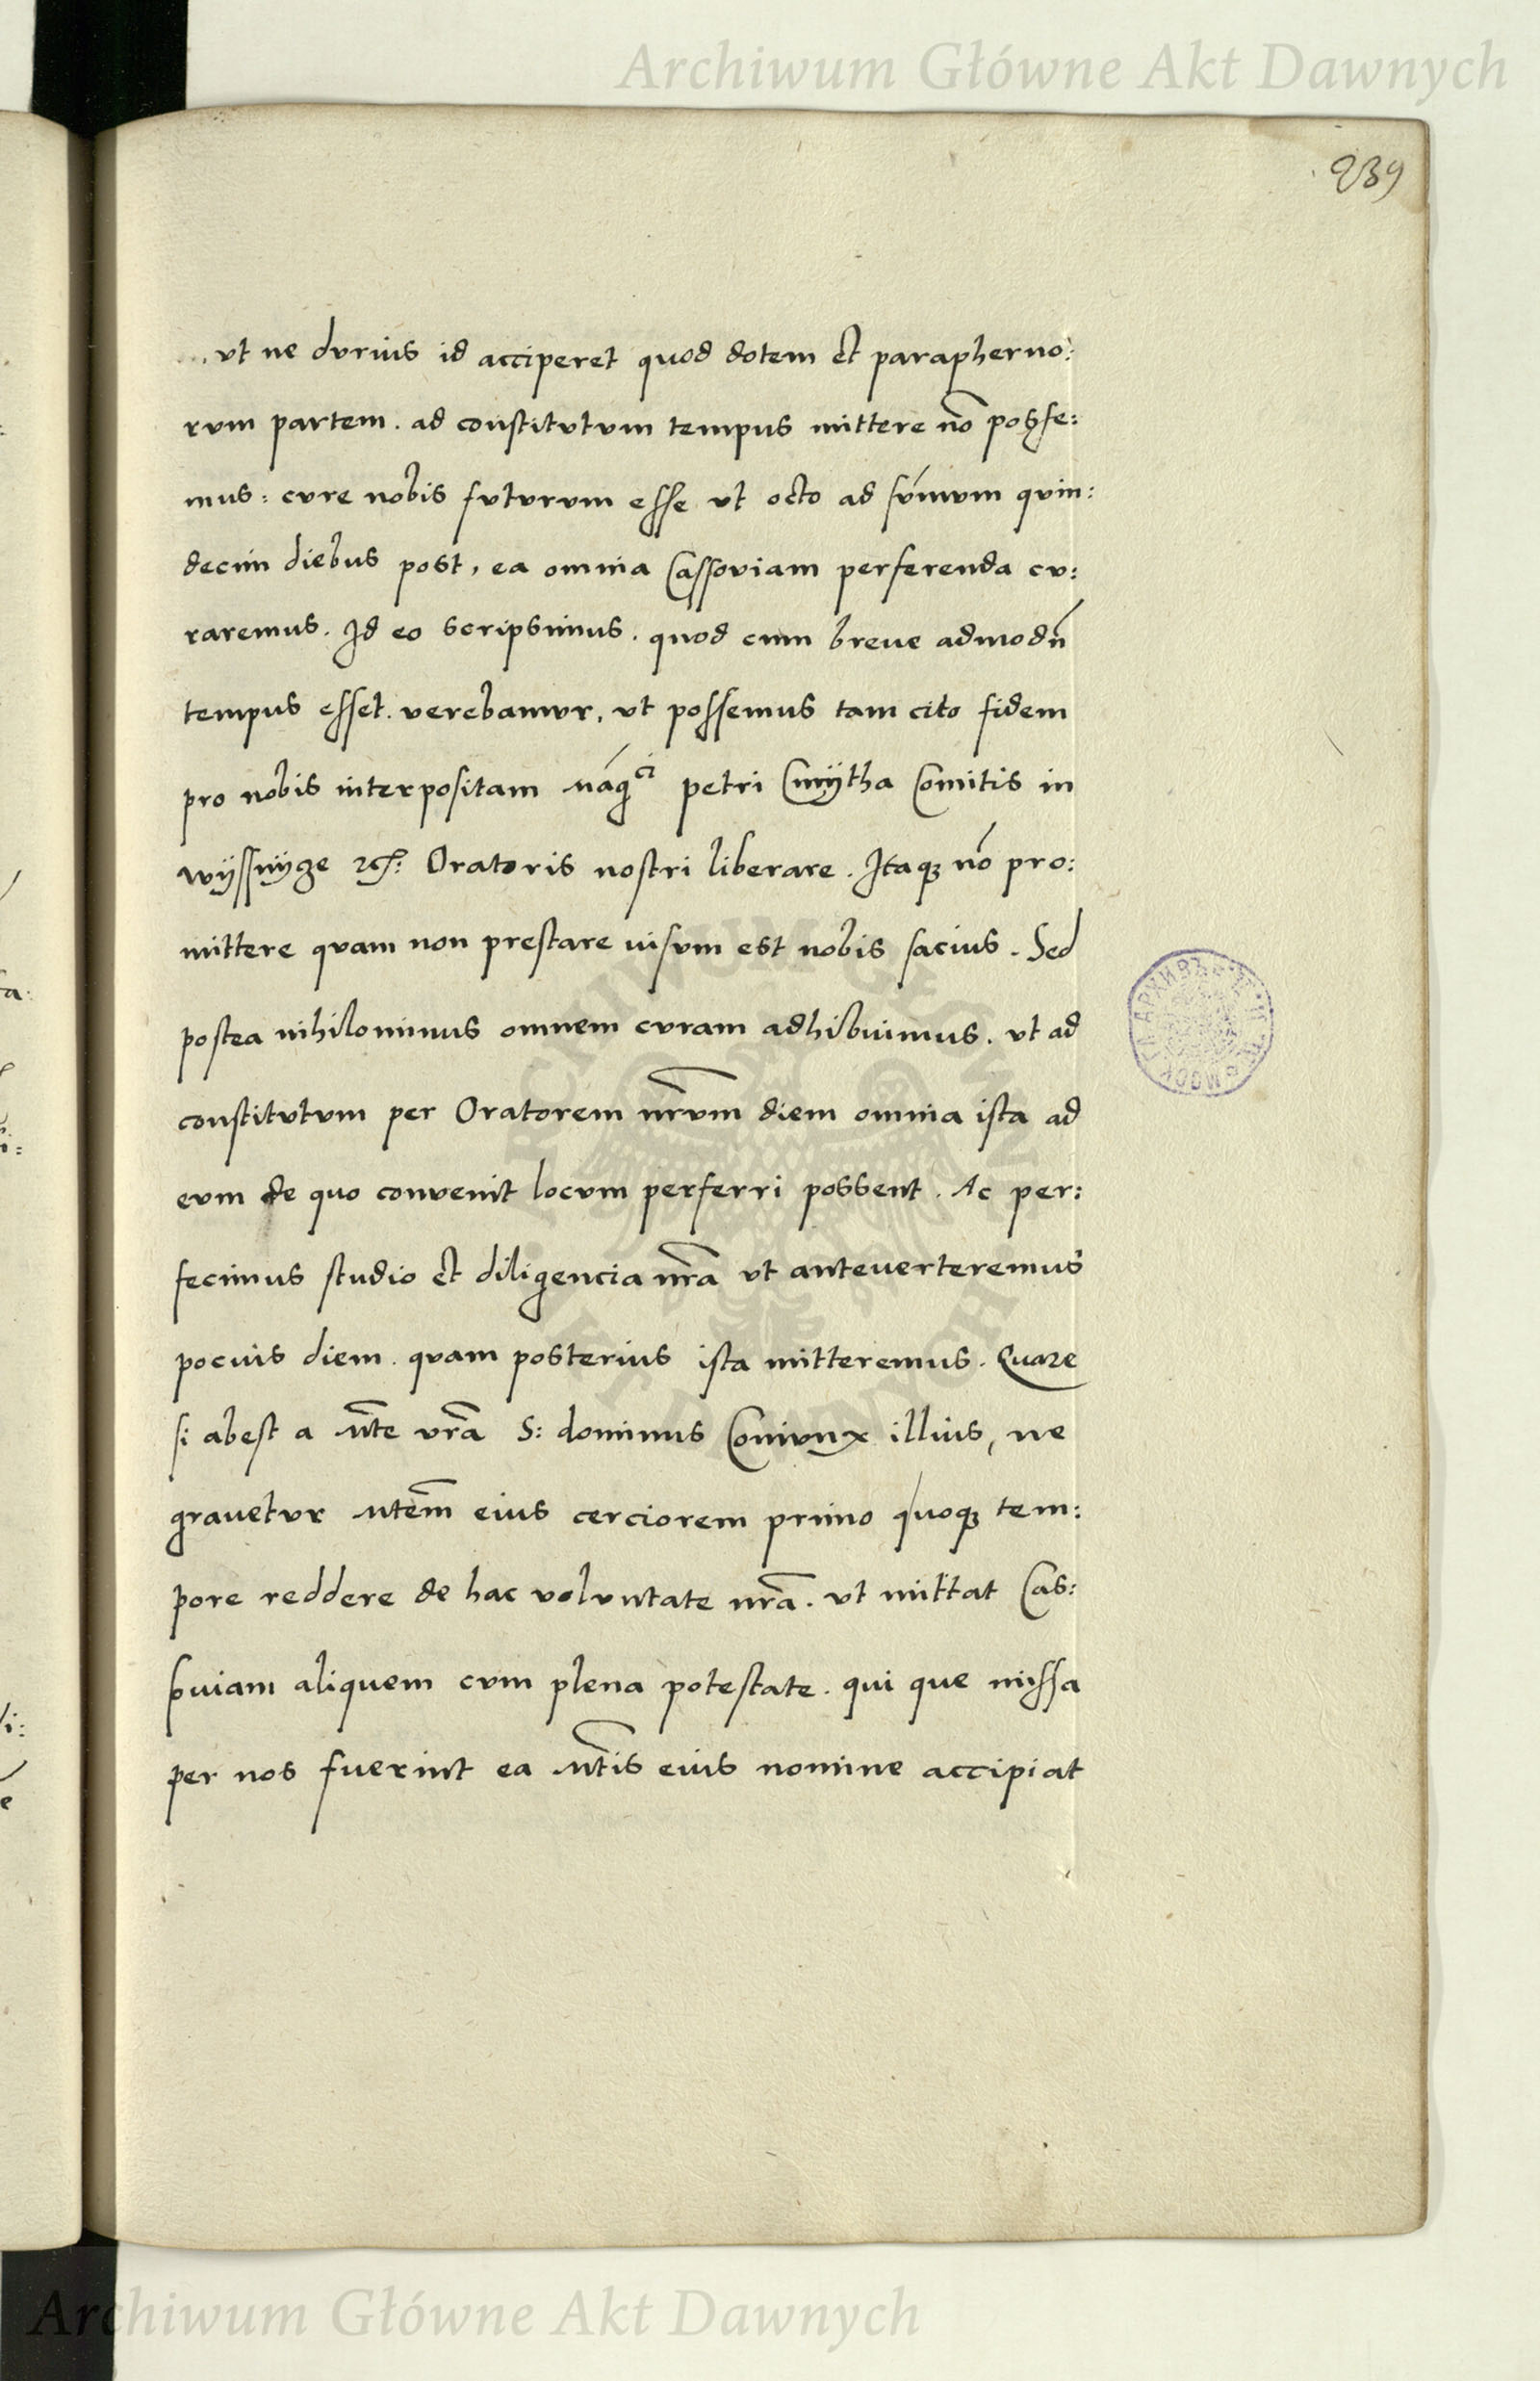 Archiwum Główne Akt Dawnych
239
vt ne dvrius id acciperet quod dotem et parapherno:
rvm partem. ad constitvtvm tempus mittere nō possse:
mus: cvre nobis fvtvrvm esse vt octo ad sv̄mvm qvin:
decim diebus post, ea omnia Cassoviam perferenda cv:
raremus. Id eo scripsimus. quod cum breve admodū
tempus esset. verebamvr, vt possemus tam cito fidem
pro nobis interpositam Māgci petri Cmÿtha Comitis in
wÿssnÿze etc: Oratoris nostri liberare. Itaqꝫ nō pro:
mittere qvam non prestare uisvm est nobis sacius. Sed
postea nihilominus omnem cvram adhibuimus. vt ad
constitvtvm per Oratorem nr̄vm diem omnia ista ad
evm de quo convenit locvm perferri possent. Ac per:
fecimus studio et diligencia nr̄a vt anteverteremus
pocuis diem. qvam posterius ista mitteremus. Quare
si abest a Mt̄e vr̄a S: dominus Conivnx illius, ne
gravetvr Mtem̄ eius cerciorem primo quoqꝫ tem:
pore reddere de hac volvntate nr̄a. vt mittat Cas:
soviam aliquem cvm plena potestate. qui que missa
per nos fuerint ea Mt̄is eius nomine accipiat
Archiwum Główne Akt Dawnych